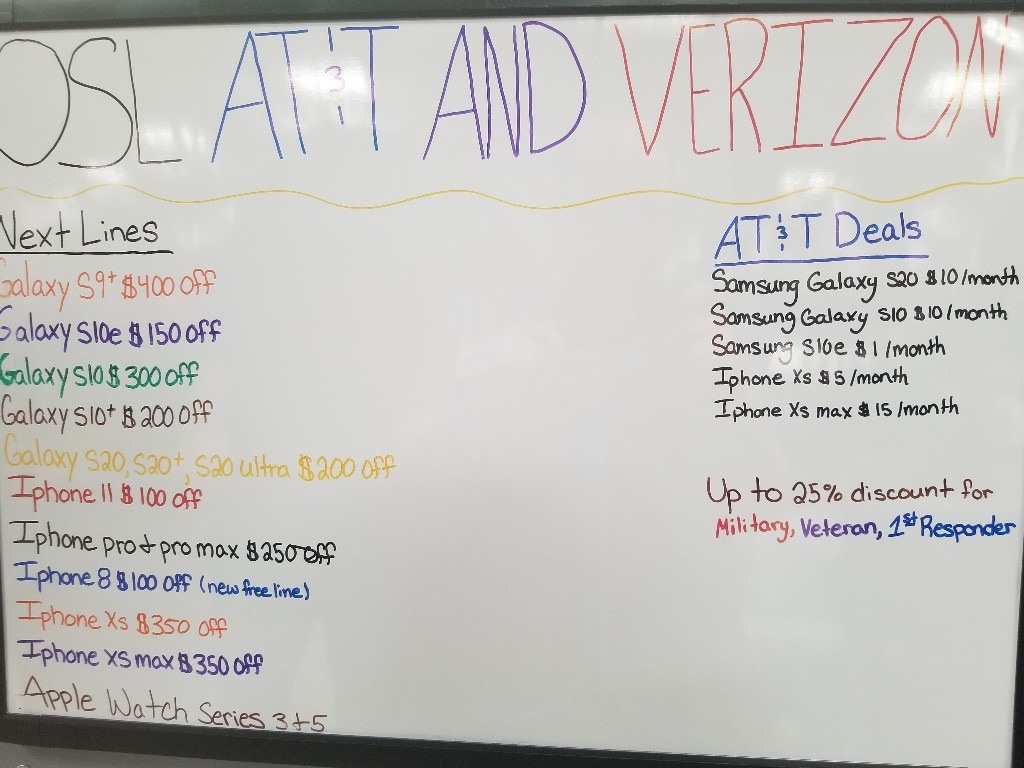 OSL AT&T AND VERIZON
Next Lines
Galaxy S9+ $400 off
Galaxy S10e $150 off
Galaxy S10 $300 off
Galaxy S10+ $200 off
Galaxy S20, S20+, S20 ultra $200 off
Iphone 11 $100 off
Iphone pro + pro max $250 off
Iphone 8 $100 off (new free line)
Iphone Xs $350 off
Iphone XS max $350 off
Apple Watch Series 3+5
AT&T Deals
Samsung Galaxy S20 $10/month
Samsung Galaxy S10 $10/month
Samsung S10e $1/month
Iphone Xs $5/month
Iphone Xs max $15/month
Up to 25% discount for
Military, Veteran, 1st Responder